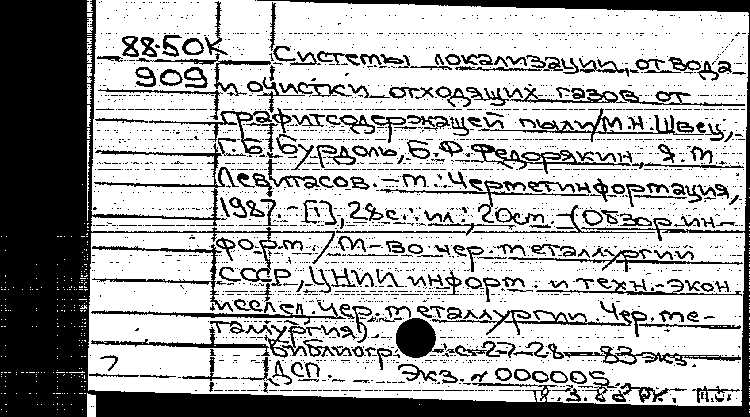 88-50К Системы локализации, отвода
909 и очистки отходящих газов от
графитсодержащей пыли/М.Н.Швец,
Г.Б. Бурдоль, Б.Ф. Федорякин, Я.М.
Левитасов.-М.: Черметинформация,
1987.-[1], 28с.: ил.; 20см.-(Обзор.ин-
форм. / М-во чер. металлургии
СССР, ЦНИИ информ. и техн.-экон.
исслед. чер. металлургии. Чер. ме-
таллургия).
Библиогр.: с. 27-28 83 экз.
ДСП. Экз. № 000005
18.3.88